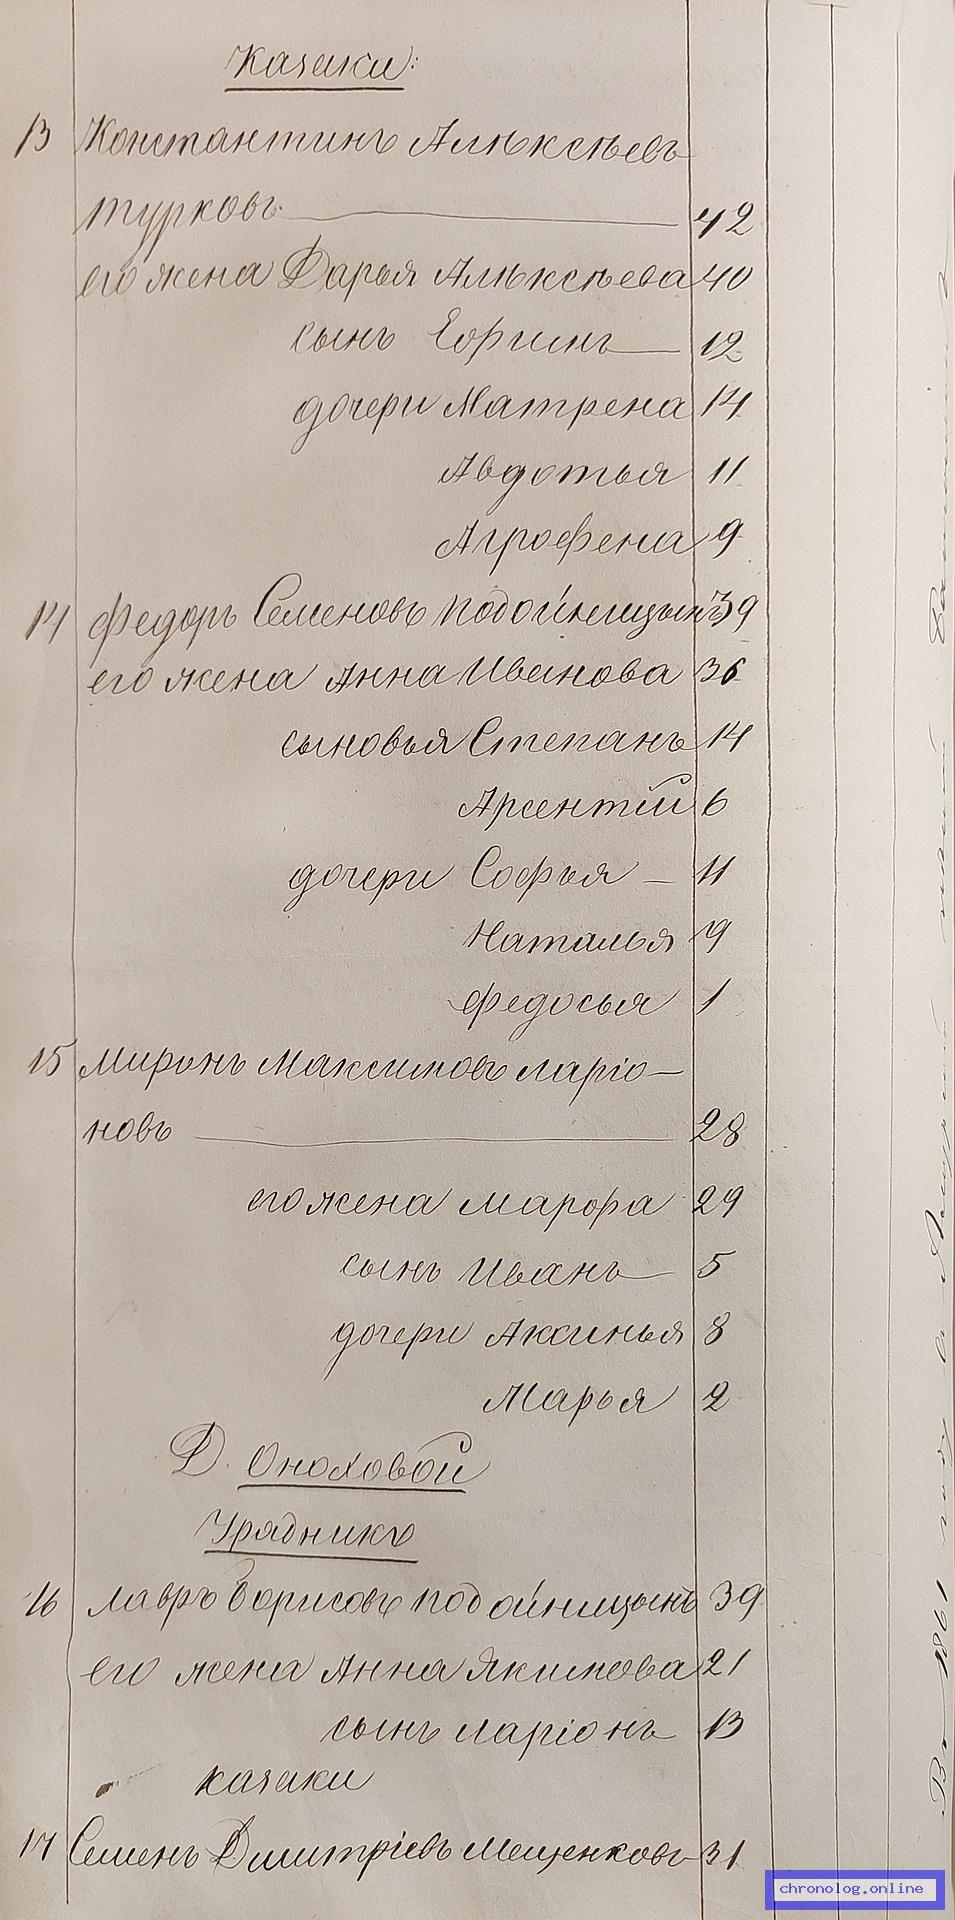 Казаки:
13 Константинъ Алѣксѣевъ
Турковъ 42
его жена Дарья Алѣксѣева 40
сынъ Ефимъ 12
дочери Матрена 14
Авдотья 11
Агрофена 9
14 Федоръ Семеновъ Подойницынъ 39
его жена Анна Иванова 36
сыновья Степанъ 14
Арсентій 6
дочери Софья 11
Наталья 9
Федосья 1
15 Миронъ Максимовъ Ларіо-
новъ 28
его жена Марфа 29
сынъ Иванъ 5
дочери Аксинья 8
Марья 2
Д. Оноховой
Урядникъ
16 Лавръ Борисовъ Подойницынъ 39
его жена Анна Якимова 21
сынъ Ларіонъ 13
казаки
17 Семенъ Дмитріевъ Мещенковъ 31
1861
chronolog.online